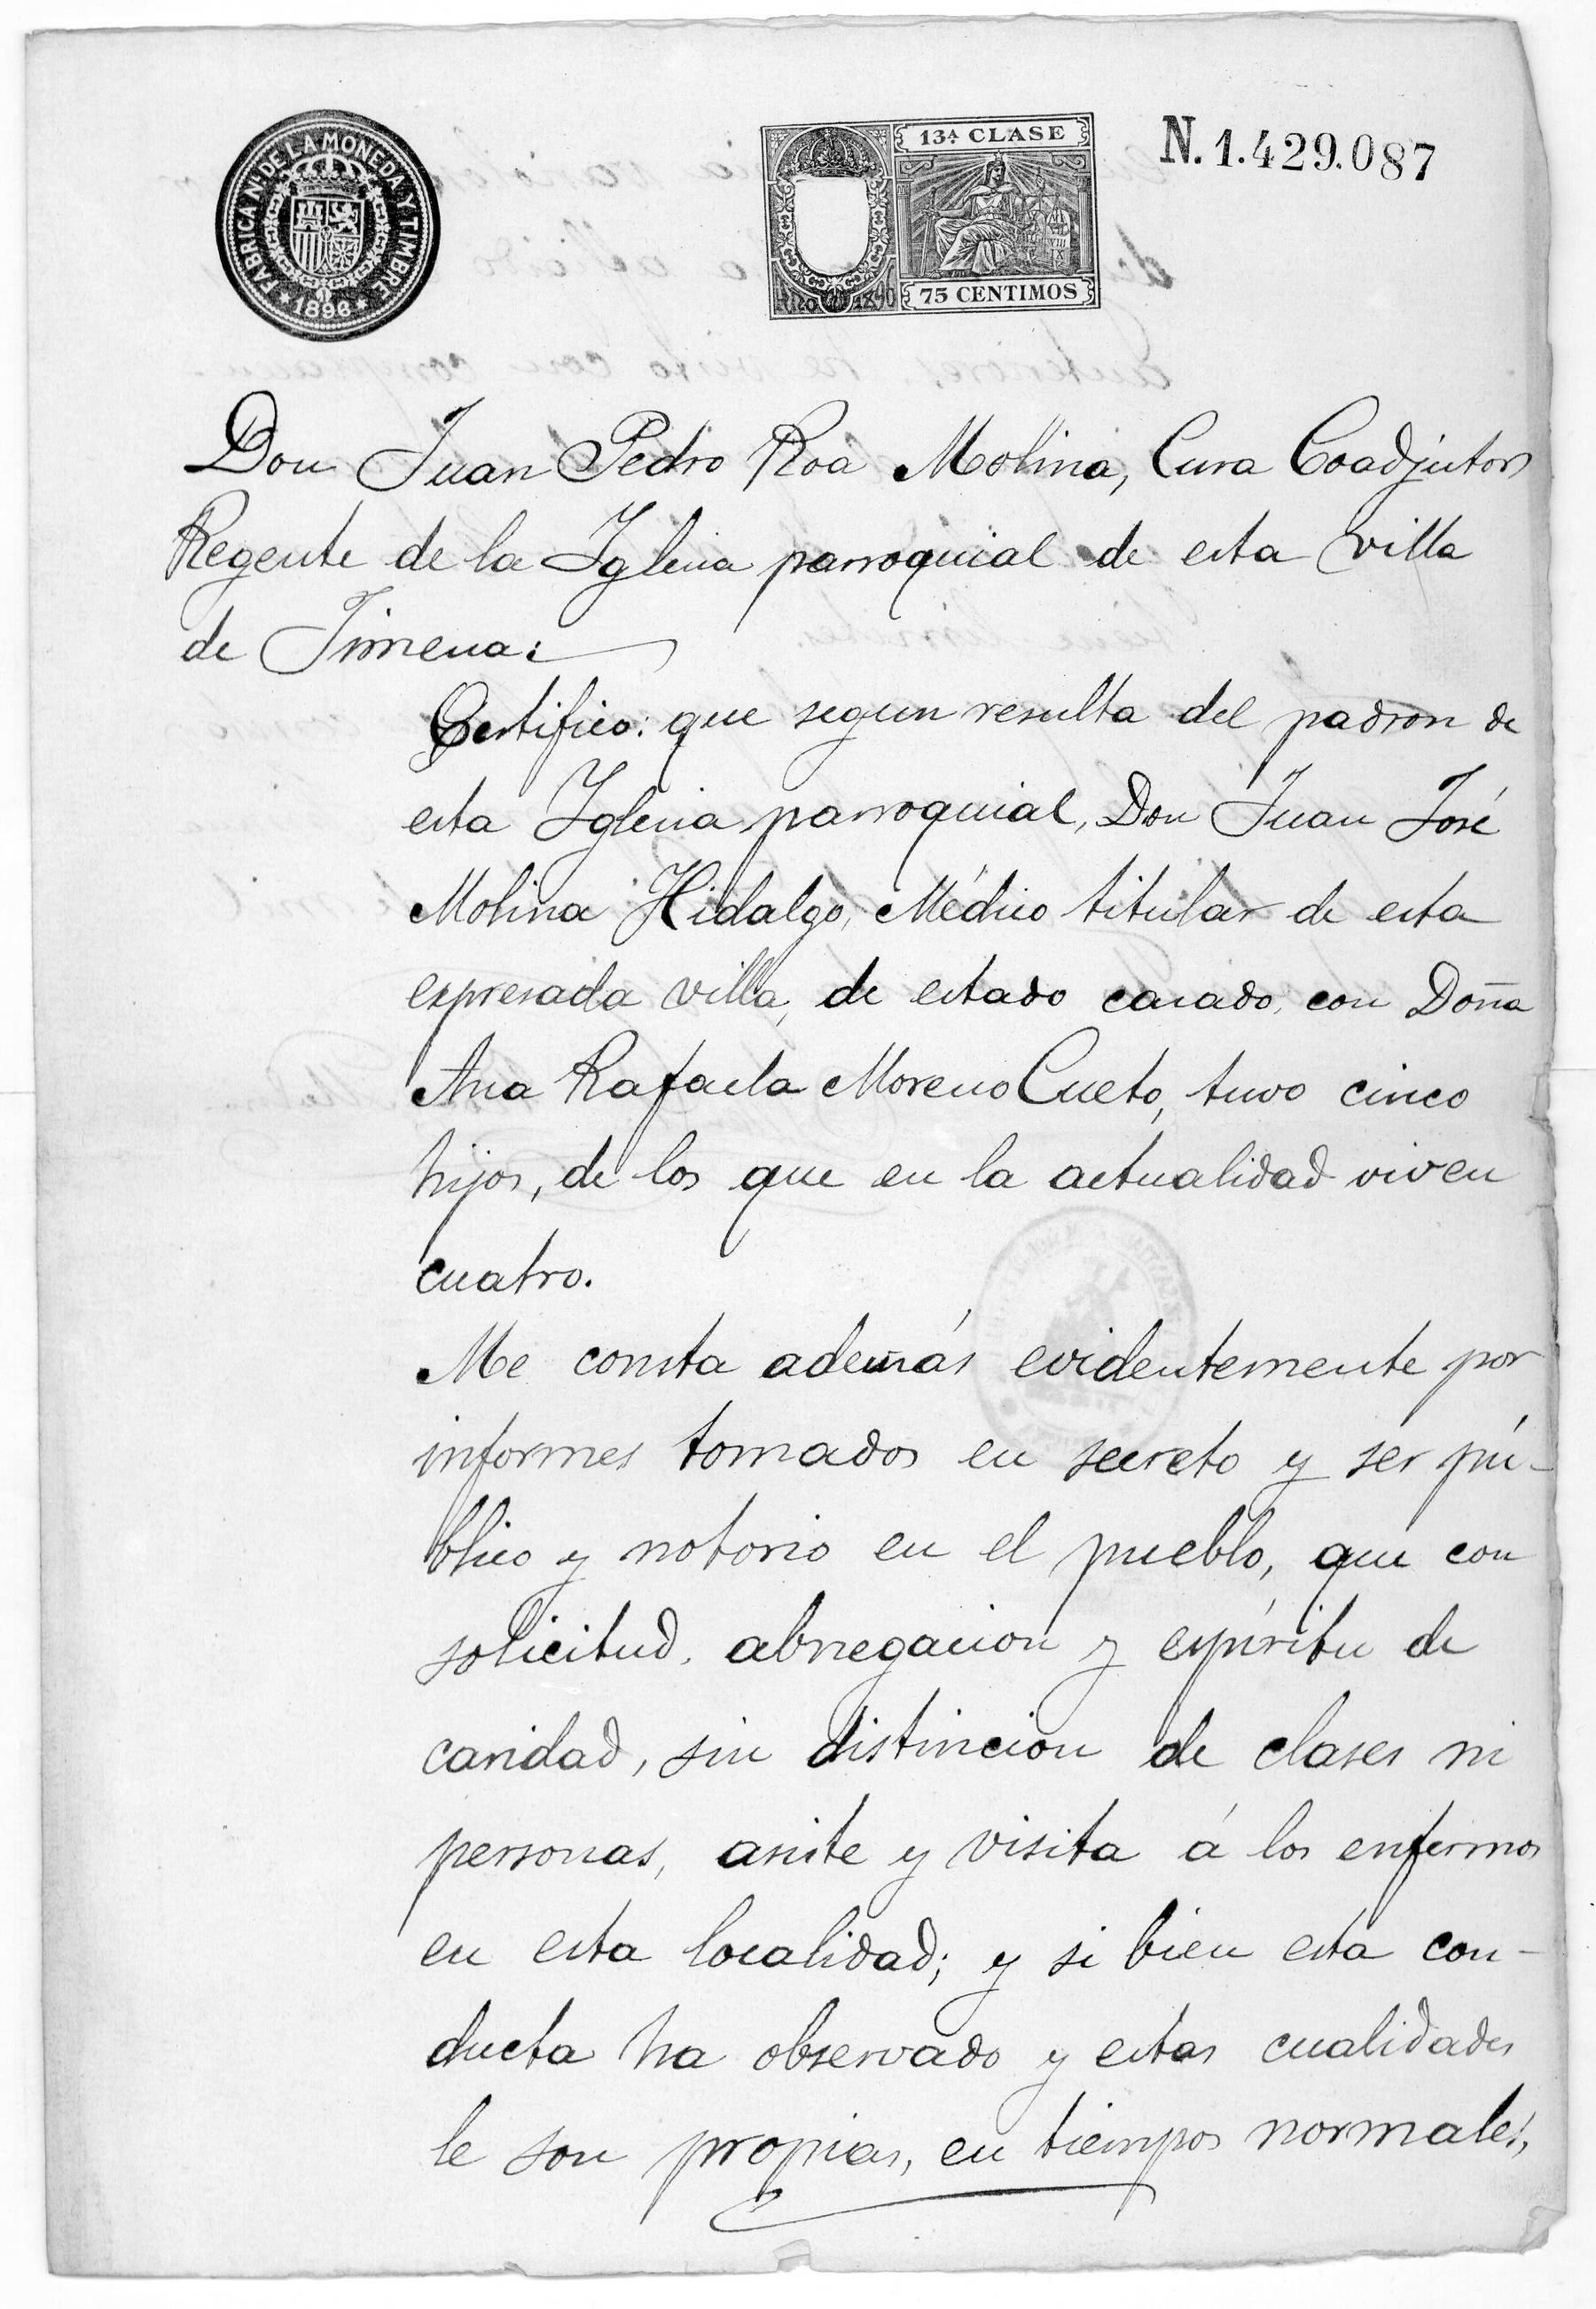 FABRICA N. DE LA MONEDA Y TIMBRE
1896
13ª CLASE
75 CENTIMOS
N. 1.429.087
Don Juan Pedro Roa Molina, Cura Coadjutor
Regente de la Iglesia parroquial de esta villa
de Jimena:
Certifico: que segun resulta del padron de
esta Iglesia parroquial, Don Juan José
Molina Hidalgo, Médico titular de esta
expresada villa, de estado casado, con Doña
Ana Rafaela Moreno Cueto, tuvo cinco
hijos, de los que en la actualidad viven
cuatro.
Me consta además evidentemente por
informes tomados en secreto y ser pú-
blico y notorio en el pueblo, que con
solicitud, abnegacion y espíritu de
caridad, sin distincion de clases ni
personas, asiste y visita á los enfermos
en esta localidad; y si bien esta con-
ducta ha observado y estas cualidades
le son propias, en tiempos normales,